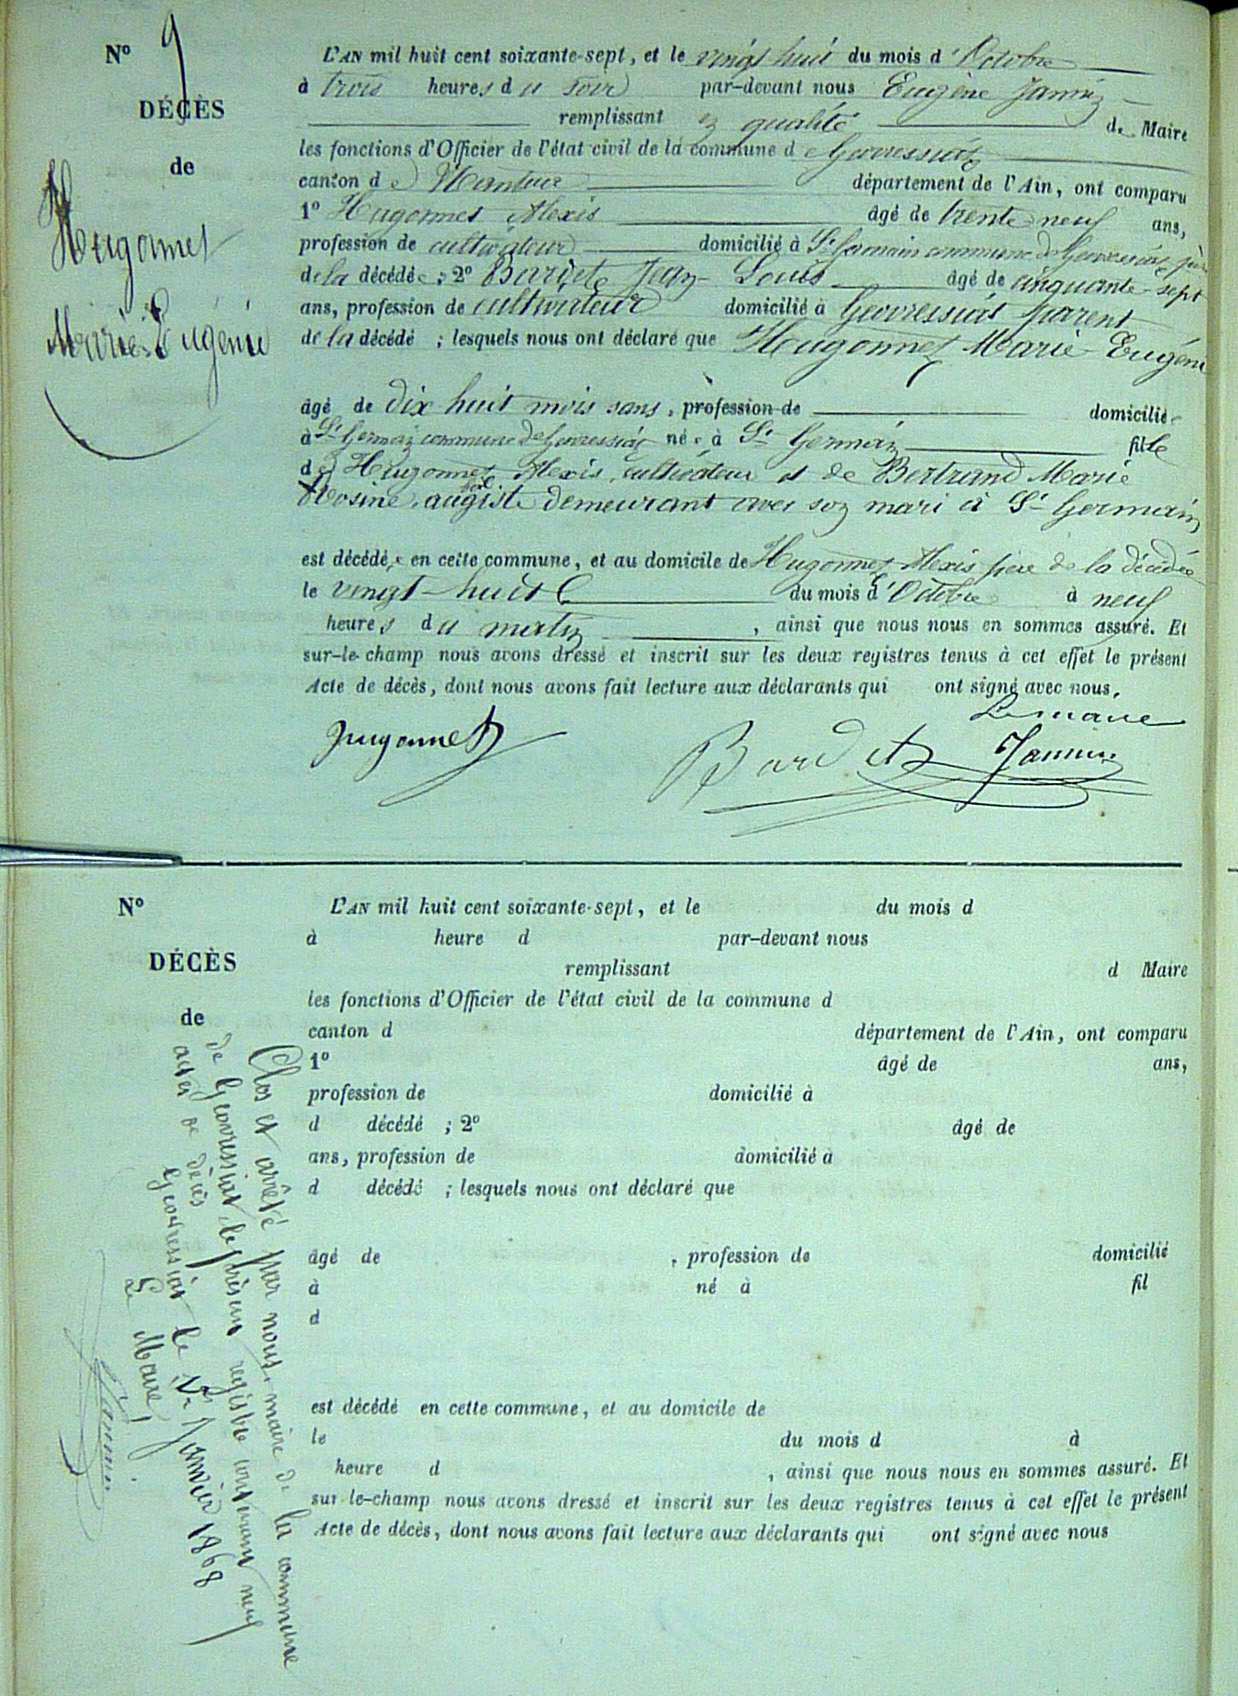 N° 9
DÉCÈS
de
Hugonnet
Marie Eugénie
L'AN mil huit cent soixante-sept, et le vingt huit du mois d'Octobre
à trois heures du soir par-devant nous Eugène Jannin
remplissant en qualité de Maire
les fonctions d'Officier de l'état civil de la commune de Géovressiat
canton de Nantua département de l'Ain, ont comparu
1° Hugonnet Alexis âgé de trente neuf ans,
profession de cultivateur domicilié à St Germain commune de Géovressiat père
de la décédée ; 2° Bardet Jean Louis âgé de cinquante-sept
ans, profession de cultivateur domicilié à Géovressiat parent
de la décédé ; lesquels nous ont déclaré que Hugonnet Marie Eugénie
âgé de dix huit mois sans, profession de domiciliée
à St Germain commune de Géovressiat née à St Germain fille
de Hugonnet Alexis, cultivateur et de Bertrand Marie
Rosine demeurant avec son mari à St Germain
est décédée en cette commune, et au domicile de Hugonnet Alexis père de la décédée
le vingt-huit du mois d'Octobre à neuf
heures du matin, ainsi que nous nous en sommes assuré. Et
sur-le-champ nous avons dressé et inscrit sur les deux registres tenus à cet effet le présent
Acte de décès, dont nous avons fait lecture aux déclarants qui ont signé avec nous.
Le maire
Hugonnet Bardet Jannin
N°
DÉCÈS
de
L'AN mil huit cent soixante-sept, et le du mois d
à heure d par-devant nous
remplissant d Maire
les fonctions d'Officier de l'état civil de la commune d
canton d département de l'Ain, ont comparu
1° âgé de ans,
profession de domicilié à
d décédé ; 2° âgé de
ans, profession de domicilié à
d décédé ; lesquels nous ont déclaré que
âgé de , profession de domicilié
à né à fil
d
est décédé en cette commune, et au domicile de
le du mois d à
heure d , ainsi que nous nous en sommes assuré. Et
sur-le-champ nous avons dressé et inscrit sur les deux registres tenus à cet effet le présent
Acte de décès, dont nous avons fait lecture aux déclarants qui ont signé avec nous
Clos et arrêté par nous, maire de la commune
de Géovressiat, le présent registre contenant neuf
actes de décès
Géovressiat le 1er Janvier 1868
Le Maire,
Jannin